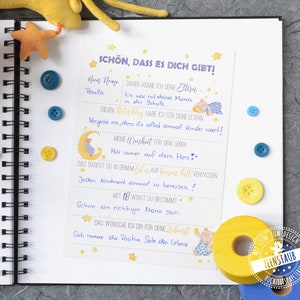 SCHÖN, DASS ES DICH GIBT!
Mein Name
DAHER KENNE ICH DEINE Eltern
Paula
Ich war mit deiner Mama
in der Schule.
DIESEN Ratschlag HABE ICH FÜR DEINE ELTERN
Vergesst nie, dass ihr selbst einmal Kinder wart!
MEINE Weisheit FÜR DEIN LEBEN
Hör immer auf dein Herz
DAS DARFST DU IN DEINEM Leben AUF keinen Fall VERPASSEN
Jeden Kontinent einmal zu bereisen!
MIT 18 WIRST DU BESTIMMT
Schon ein richtiger Mann sein.
DAS WÜNSCHE ICH DIR FÜR DEINE Zukunft
Sieh immer die Positive Seite des Lebens
FEENSTAUB